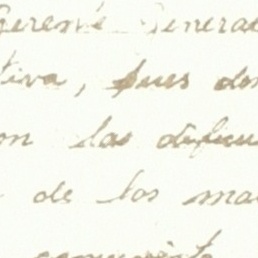 Gerente General
tiva, pues do
on las
de los ma